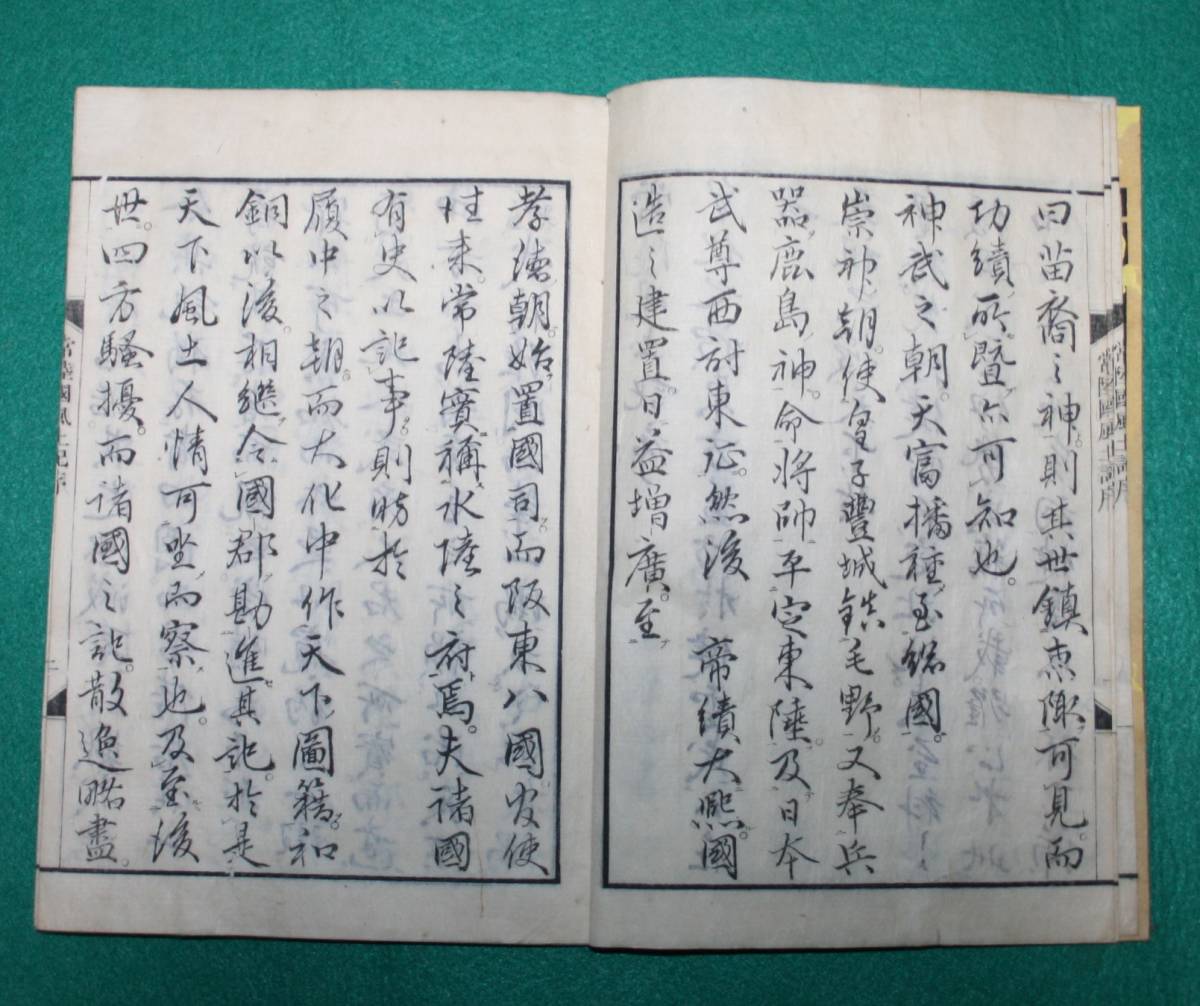 常陸國風土記序
曰苗裔之神。則其世鎮東陬。可見。而
功績所曁。亦可知也。
神武之朝。天富播種至總國。
崇神朝。使皇子豐城鎮毛野。又奉兵
器鹿島神。命將帥平定東陸。及日本
武尊西討東征。然後 帝績大熙。國
造之建置。日益增廣。至
孝德朝。始置國司。而阪東八國官使
往來。常陸實稱水陸之府焉。夫諸國
有史以記事。則昉於
履中之朝。而大化中作天下圖籍。和
銅以後相繼令國郡勘進其記。於是
天下風土人情可坐而察也。及至後
世。四方騷擾。而諸國之記。散逸略盡。
常陸國風土記序